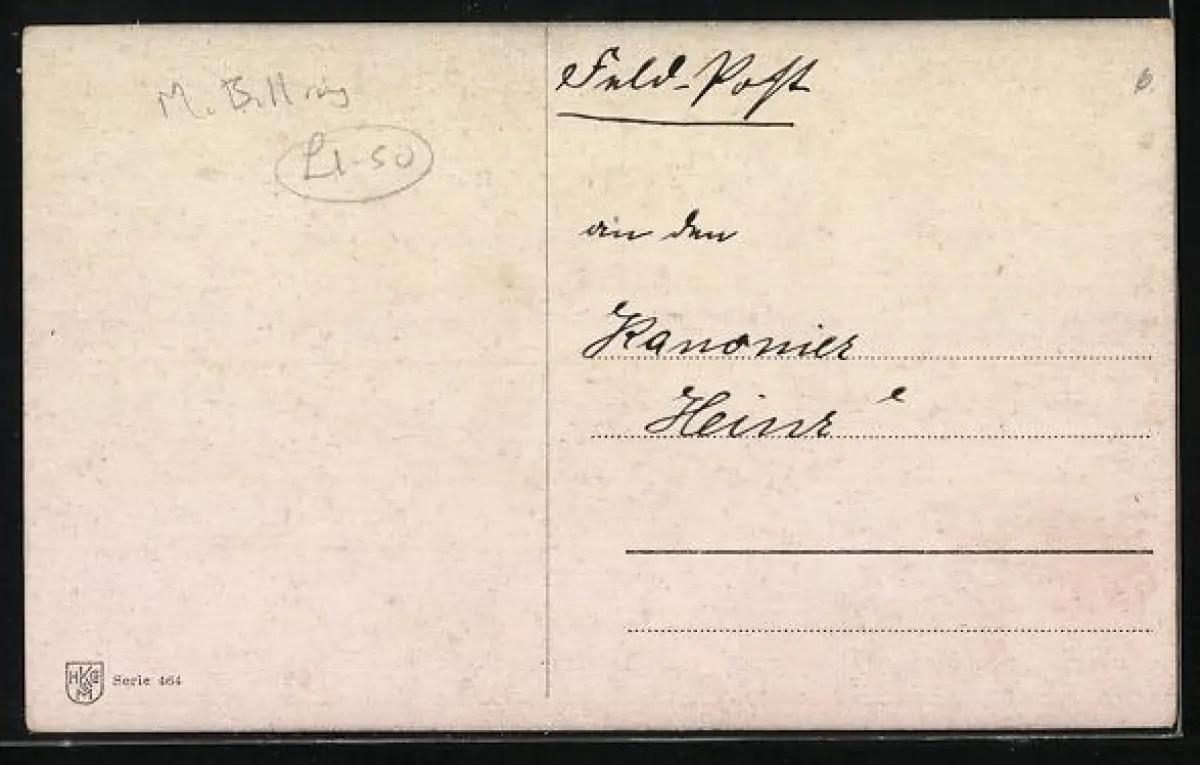 M. Billing
£1-50
Feld-Post
an den
Kanonier
Heinz
HKCo M
Serie 464